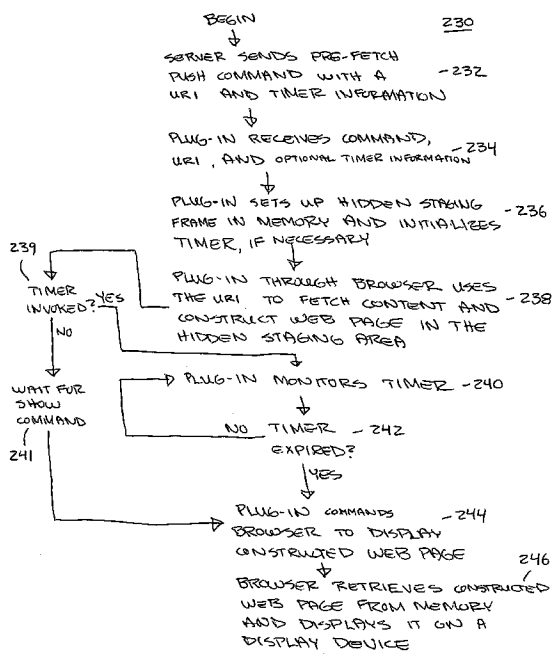 BEGIN
230
SERVER SENDS PRE-FETCH
PUSH COMMAND WITH A
URI AND TIMER INFORMATION
232
PLUG-IN RECEIVES COMMAND,
URI, AND OPTIONAL TIMER INFORMATION
234
PLUG-IN SETS UP HIDDEN STAGING
FRAME IN MEMORY AND INITIALIZES
TIMER, IF NECESSARY
236
PLUG-IN THROUGH BROWSER USES
THE URI TO FETCH CONTENT AND
CONSTRUCT WEB PAGE IN THE
HIDDEN STAGING AREA
238
239
TIMER
INVOKED?
YES
NO
WAIT FUR
SHOW
COMMAND
241
PLUG-IN MONITORS TIMER
240
TIMER
EXPIRED?
242
NO
YES
PLUG-IN COMMANDS
BROWSER TO DISPLAY
CONSTRUCTED WEB PAGE
244
246
BROWSER RETRIEVES CONSTRUCTED
WEB PAGE FROM MEMORY
AND DISPLAYS IT ON A
DISPLAY DEVICE